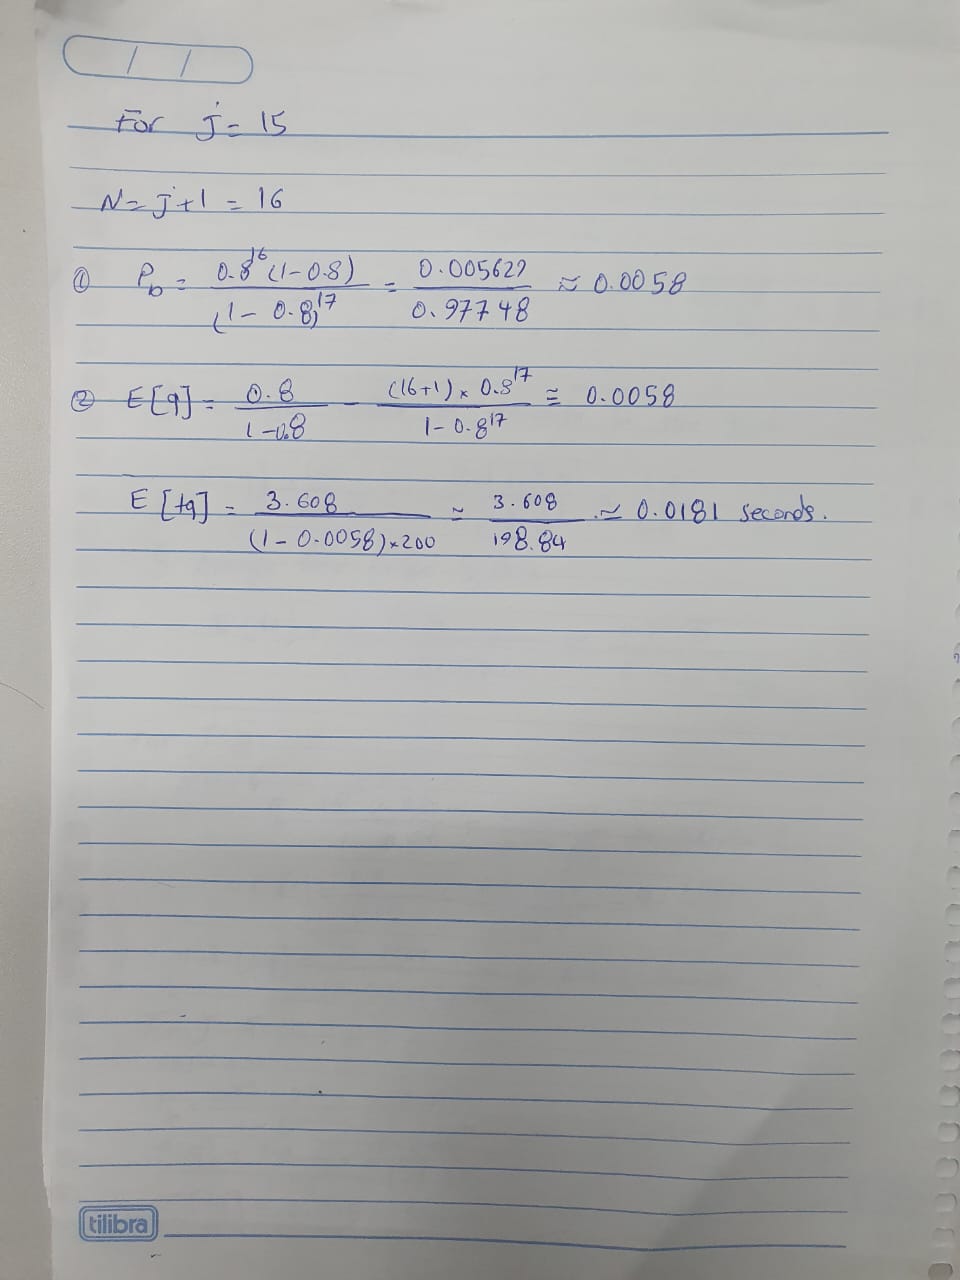 / /
For j = 15
N = j + 1 = 16
① P_b = 0.8^16 (1-0.8) / (1 - 0.8)^17 = 0.005622 / 0.97748 ≈ 0.0058
② E[q] = 0.8 / 1-0.8 - (16+1) × 0.8^17 / 1 - 0.8^17 ≅ 0.0058
E[tq] = 3.608 / (1 - 0.0058) × 200 ≈ 3.608 / 198.84 ≈ 0.0181 seconds.
tilibra